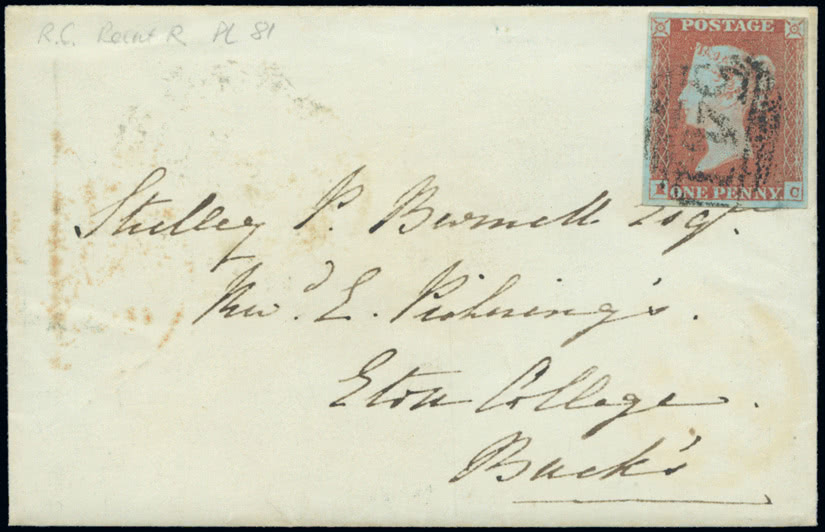 R.C. Recut R Pl 81
POSTAGE
R ONE PENNY C
Shelley P. Burnell Esqr.
Revd. E. Pickering's.
Eton College.
Buck's